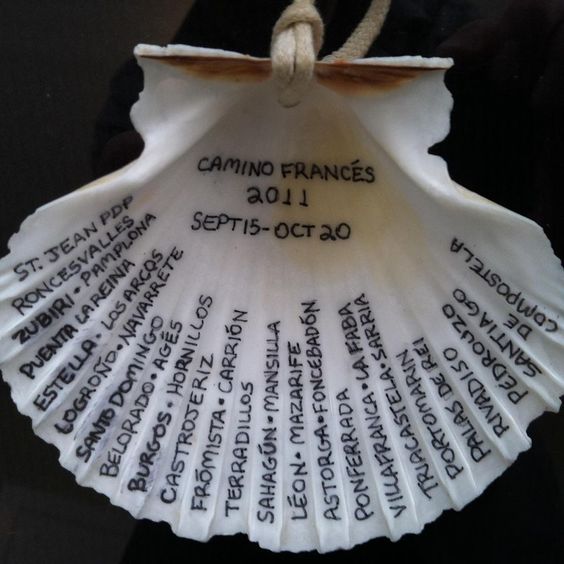 CAMINO FRANCÉS
2011
SEPT 15-OCT 20
ST. JEAN PDP
RONCESVALLES
ZUBIRI • PAMPLONA
PUENTA LA REINA
ESTELLA • LOS ARCOS
LOGROÑO • NAVARRETE
SANTO DOMINGO
BELORADO • AGÉS
BURGOS • HORNILLOS
CASTROJERIZ
FRÓMISTA • CARRIÓN
TERRADILLOS
SAHAGÚN • MANSILLA
LÉON • MAZARIFE
ASTORGA • FONCEBADÓN
PONFERRADA • LA FABA
VILLAFRANCA • SARRIA
TRIACASTELA
PORTOMARIN
PALAS DE REI
RIVADISO
PEDROUZO
SANTIAGO
DE
COMPOSTELA